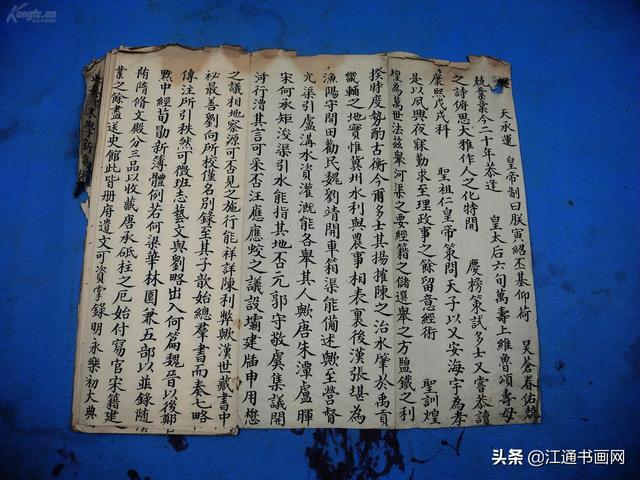 Kongfz.cn
天承運 皇帝制曰朕寅紹丕基仰荷 昊蒼眷佑兢
兢業業今二十年恭逢 皇太后六旬萬壽上維魯頌壽母
之詩俯思大雅作人之化特開 慶榜策試多士又嘗恭讀
康熙戊戌科 聖祖仁皇帝策問天子以乂安海宇為孝
是以夙興夜寐勤求至理政事之餘留意經術 聖訓煌
煌為萬世法茲舉河渠之要經籍之儲選舉之方鹽鐵之利
揆時度勢酌古衡今爾多士其揚搉陳之治水肇於禹貢
畿輔之地實惟冀州水利與農事相表裏後漢張堪為
漁陽守開田勸民魏劉靖開車箱渠能備述歟至營督
亢渠引盧溝水資灌溉能各舉其人歟唐朱潭盧暉
宋何承矩浚渠引水能指其地否元郭守敬虞集議開
河行漕其言可采否汪應蛟之議設壩建牐申用懋
之議相地察源可否見之施行能祥詳陳利弊歟漢世藏書中
祕最善劉向所校僅名別錄至其子歆始總羣書而奏七略
傳注所引秩然可徵班志藝文與劉略出入何篇魏晉以後鄭
默中經荀勖新簿體例若何梁華林園兼五部以並錄隨
隋脩文殿分三品以收藏唐承砥柱之厄始付寫官宋籍建
業之餘盡送史館此皆冊府遺文可資掌錄明永樂初大典
头条@江通书画网